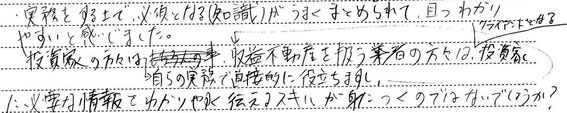 実務をする上で、必須となる(知識)がうまくまとめられて、且つわかり
クライアントとなる
やすいと感じました。
投資家の方々は、収益不動産を扱う業者の方々は、投資家
自らの実務で直接的に役立ちますし、
に必要な情報をわかりやすく伝えるスキルが身につくのではないでしょうか?